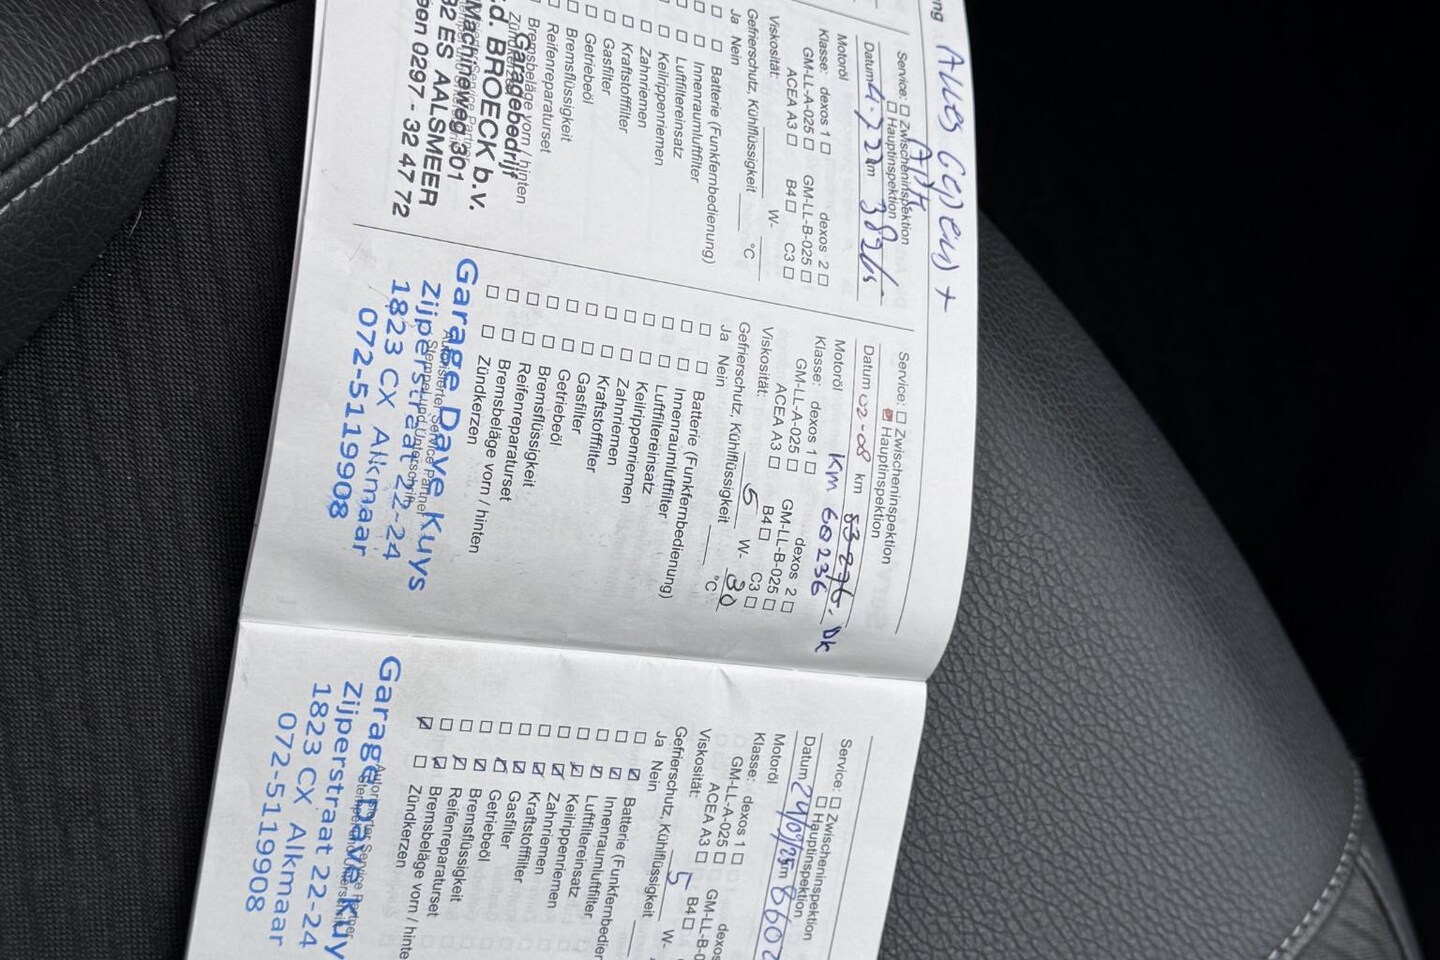 Alles
+
Service: □ Zwischeninspektion
□ Hauptinspektion
Datum km
Motoröl
Klasse: dexos 1 □ dexos 2 □
GM-LL-A-025 □ GM-LL-B-025 □
ACEA A3 □ B4 □ C3 □
Viskosität: W-
Gefrierschutz, Kühlflüssigkeit °C
Ja Nein
□ □ Batterie (Funkfernbedienung)
□ □ Innenraumluftfilter
□ □ Luftfiltereinsatz
□ □ Keilrippenriemen
□ □ Zahnriemen
□ □ Kraftstofffilter
□ □ Gasfilter
□ □ Getriebeöl
□ □ Bremsflüssigkeit
□ □ Reifenreparaturset
□ □ Bremsbeläge vorn / hinten
Garagebedrijf
.d. BROECK b.v.
Machineweg 301
32 ES AALSMEER
0297 - 32 47 72
Service: □ Zwischeninspektion
☒ Hauptinspektion
Datum 02-08 km 83-276. DK
KM 60236
Motoröl
Klasse: dexos 1 □ dexos 2 □
GM-LL-A-025 □ GM-LL-B-025 □
ACEA A3 □ B4 □ C3 □
Viskosität: 5 W- 30
Gefrierschutz, Kühlflüssigkeit °C
Ja Nein
□ □ Batterie (Funkfernbedienung)
□ □ Innenraumluftfilter
□ □ Luftfiltereinsatz
□ □ Keilrippenriemen
□ □ Zahnriemen
□ □ Kraftstofffilter
□ □ Gasfilter
□ □ Getriebeöl
□ □ Bremsflüssigkeit
□ □ Reifenreparaturset
□ □ Bremsbeläge vorn / hinten
□ □ Zündkerzen
Autorisierter Service Partner
Stempel und Unterschrift
Garage Dave Kuys
Zijperstraat 22-24
1823 CX Alkmaar
072-5119908
Service: □ Zwischeninspektion
□ Hauptinspektion
Datum 24/09/25 km 8602
Motoröl
Klasse: dexos 1 □ dexos
GM-LL-A-025 □ GM-LL-B-0
ACEA A3 □ B4 □
Viskosität: 5 W-
Gefrierschutz, Kühlflüssigkeit
Ja Nein
□ ☑ Batterie (Funkfernbedien
□ ☑ Innenraumluftfilter
□ ☑ Luftfiltereinsatz
□ ☑ Keilrippenriemen
□ ☑ Zahnriemen
□ ☑ Kraftstofffilter
□ ☑ Gasfilter
□ ☑ Getriebeöl
□ ☑ Bremsflüssigkeit
□ ☑ Reifenreparaturset
□ ☑ Bremsbeläge vorn / hinte
☑ □ Zündkerzen
Autorisierter Service Partner
Garage Dave Kuy
Zijperstraat 22-24
1823 CX Alkmaar
072-5119908